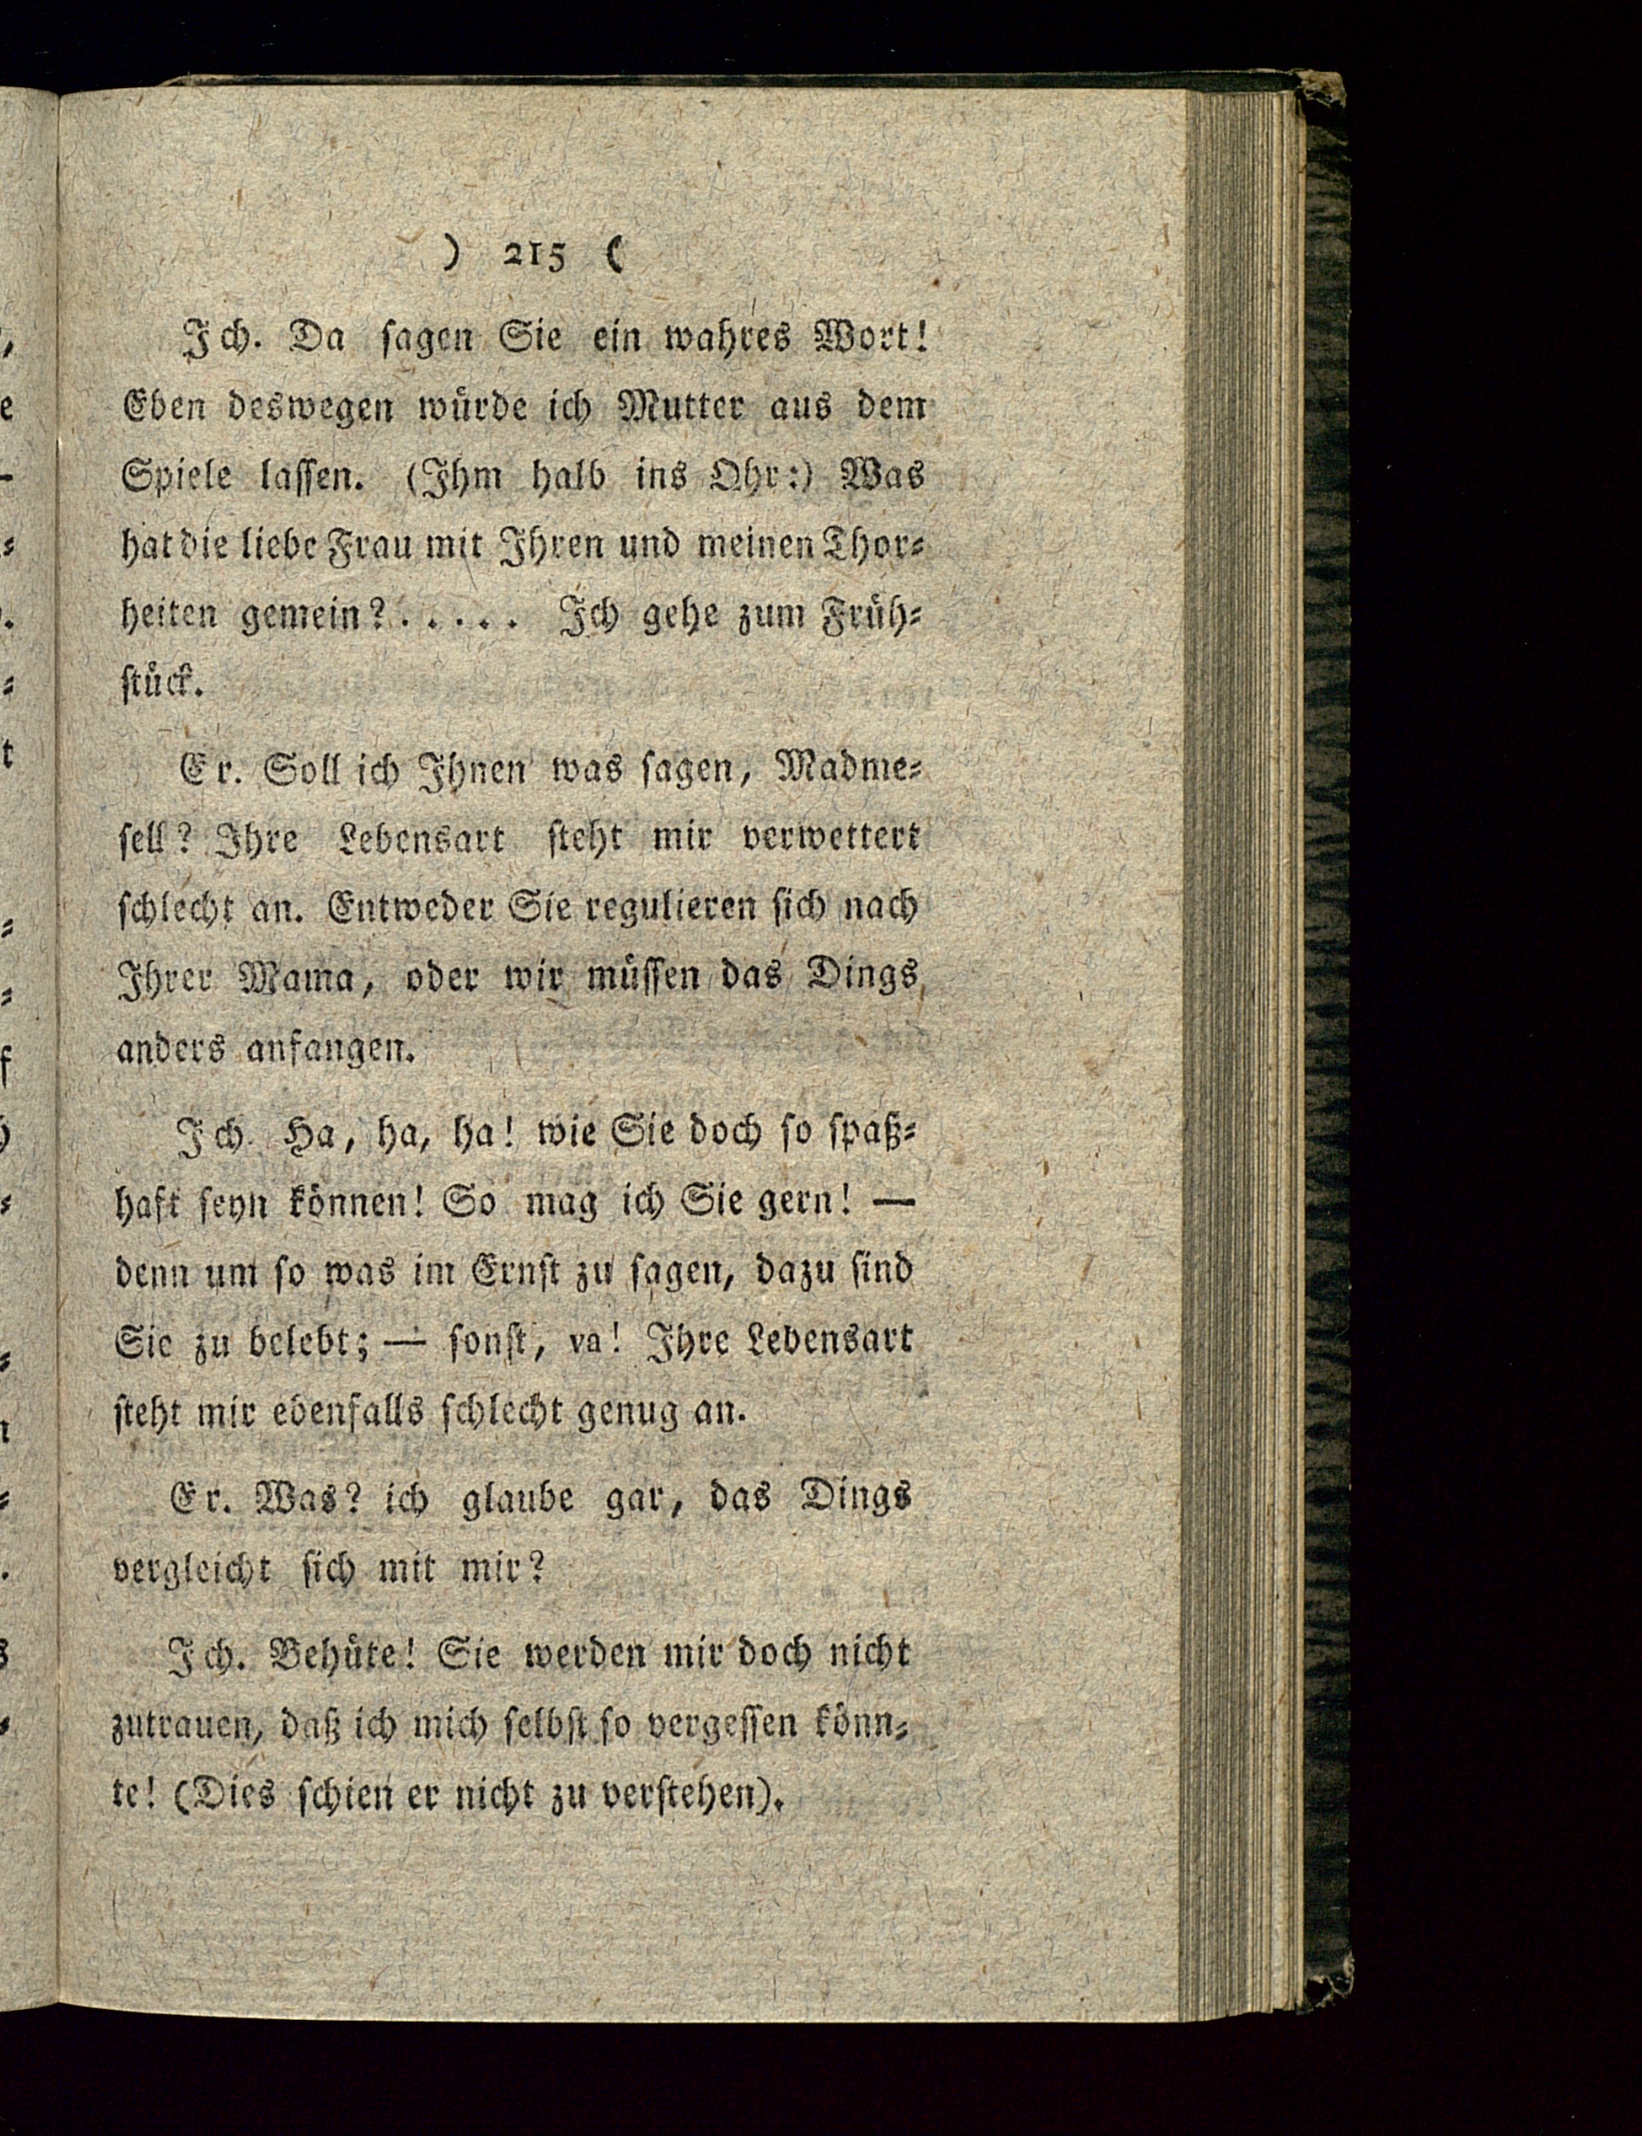 ) 215 (
Ich. Da ſagen Sie ein wahres Wort!
Eben deswegen wuͤrde ich Mutter aus dem
Spiele laſſen. (Ihm halb ins Ohr:) Was
hat die liebe Frau mit Ihren und meinen Thor⸗
heiten gemein? . . . . . Ich gehe zum Fruͤh⸗
ſtuͤck.
Er. Soll ich Ihnen was ſagen, Madme⸗
ſell? Ihre Lebensart ſteht mir verwettert
ſchlecht an. Entweder Sie regulieren ſich nach
Ihrer Mama, oder wir muͤſſen das Dings
anders anfangen.
Ich. Ha, ha, ha! wie Sie doch ſo ſpaß⸗
haft ſeyn koͤnnen! So mag ich Sie gern! —
denn um ſo was im Ernſt zu ſagen, dazu ſind
Sie zu belebt; — ſonſt, va! Ihre Lebensart
ſteht mir ebenfalls ſchlecht genug an.
Er. Was? ich glaube gar, das Dings
vergleicht ſich mit mir?
Ich. Behuͤte! Sie werden mir doch nicht
zutrauen, daß ich mich ſelbſt ſo vergeſſen koͤnn⸗
te! (Dies ſchien er nicht zu verſtehen).